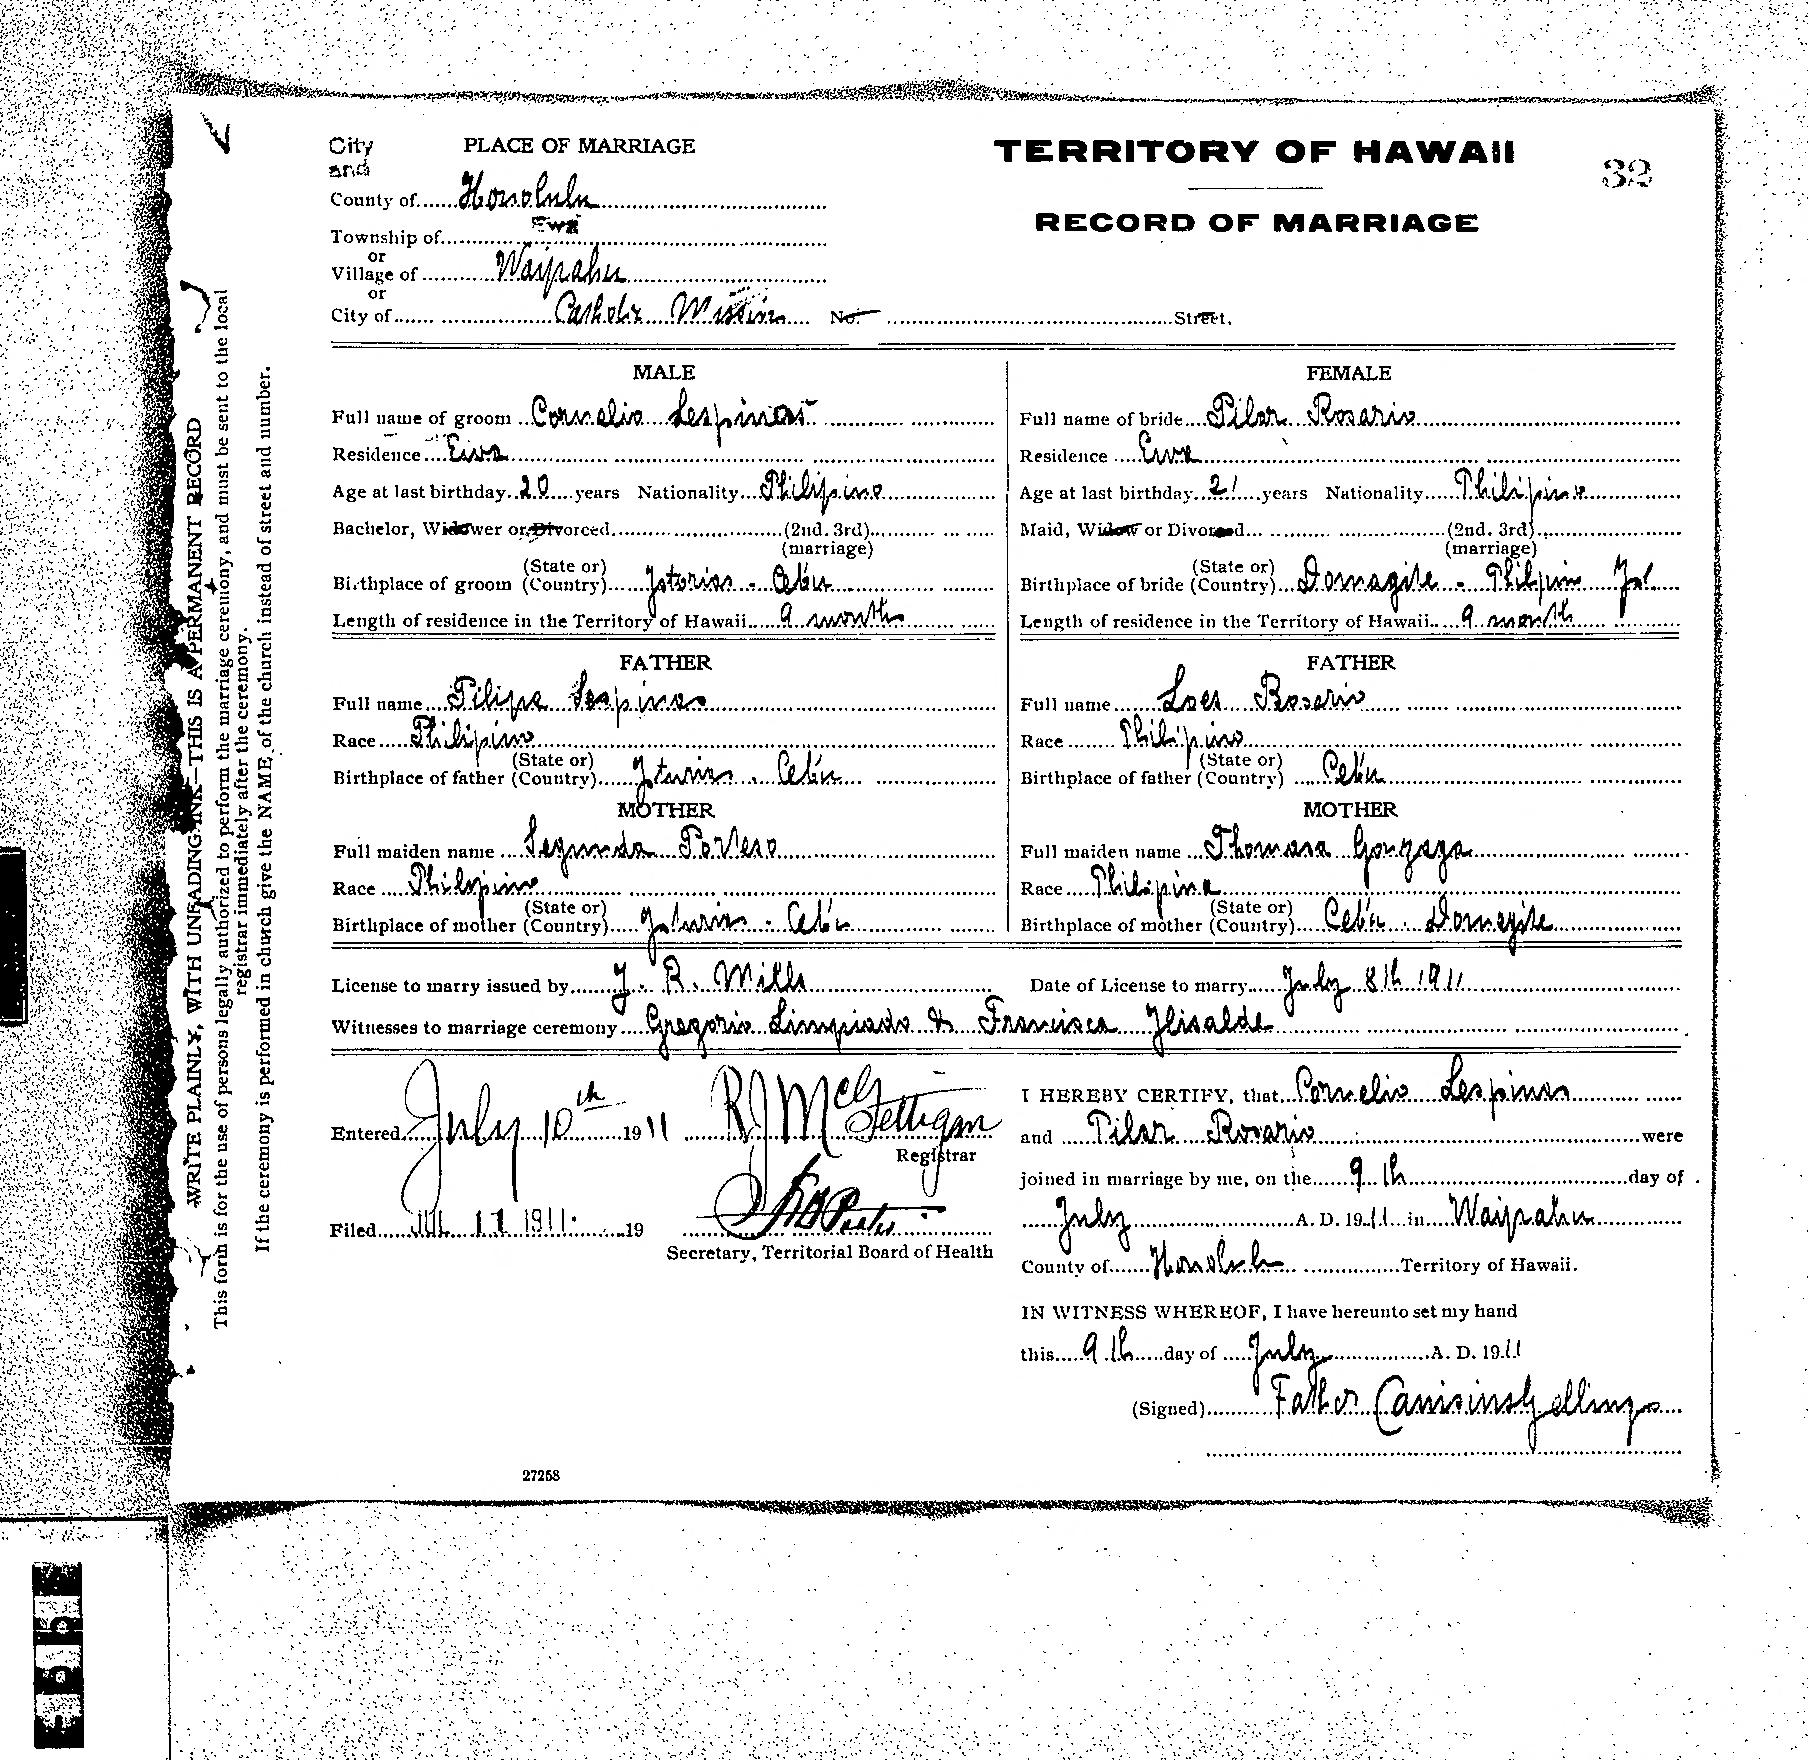 City and
PLACE OF MARRIAGE
County of Honolulu
Ewa
Township of
or
Village of Waipahu
or
City of Catholic Mission No. Street.
TERRITORY OF HAWAII
32
RECORD OF MARRIAGE
MALE
Full name of groom Cornelio Lespinas
Residence Ewa
Age at last birthday 20 years Nationality Philipino
Bachelor, Widower or Divorced (2nd. 3rd)
(marriage)
(State or)
Birthplace of groom (Country) Jsturias - Cebu
Length of residence in the Territory of Hawaii 9 month
FATHER
Full name Filipe Lespinas
Race Philipino
(State or)
Birthplace of father (Country) Jsturias - Cebu
MOTHER
Full maiden name Segunda
Race Philipino
(State or)
Birthplace of mother (Country) Jsturias - Cebu
FEMALE
Full name of bride Pilar Rosario
Residence Ewa
Age at last birthday 21 years Nationality Philipino
Maid, Widow or Divorced (2nd. 3rd)
(marriage)
(State or)
Birthplace of bride (Country) Domagite - Philipin Jsl
Length of residence in the Territory of Hawaii 9 month
FATHER
Full name Loes Rosario
Race Philipino
(State or)
Birthplace of father (Country) Cebu
MOTHER
Full maiden name Thomasa Gonzaga
Race Philipina
(State or)
Birthplace of mother (Country) Cebu - Domagite
License to marry issued by J. R. Mills Date of License to marry July 8th 1911
Witnesses to marriage ceremony Gregorio Limpiado & Francisca Jlisalde
Entered July 10th 1911 R J McGettigan
Registrar
Filed JUL 11 1911 19
Secretary, Territorial Board of Health
I HEREBY CERTIFY, that Cornelio Lespinas
and Pilar Rosario were
joined in marriage by me, on the 9th day of
July A. D. 1911 in Waipahu
County of Honolulu Territory of Hawaii.
IN WITNESS WHEREOF, I have hereunto set my hand
this 9th day of July A. D. 1911
(Signed) Father Canisius Gellings
27258
WRITE PLAINLY, WITH UNFADING INK—THIS IS A PERMANENT RECORD
This form is for the use of persons legally authorized to perform the marriage ceremony, and must be sent to the local
registrar immediately after the ceremony.
If the ceremony is performed in church give the NAME of the church instead of street and number.